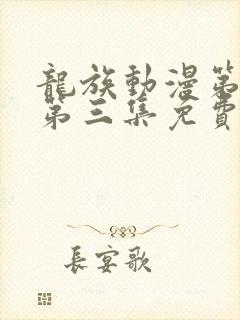 龍族動漫第
第三集免費
長宴歌